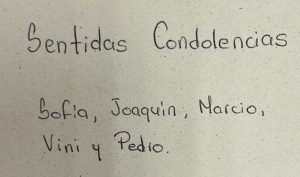 Sentidas Condolencias
Sofía, Joaquin, Marcio,
Vini y Pedro.